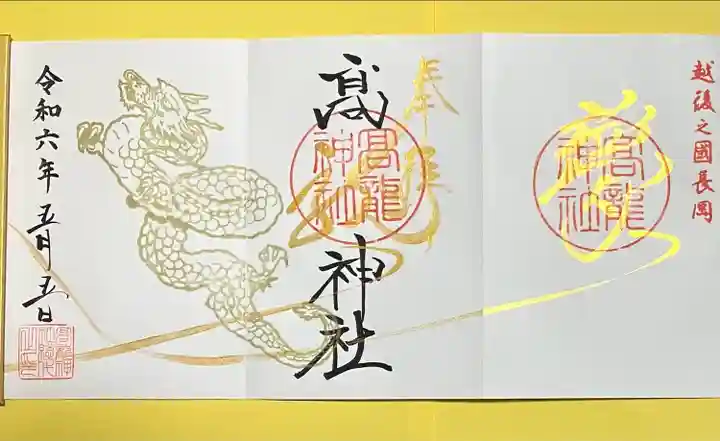 越後之國長岡
高龍
神社
奉拝
高龍神社
高龍
神社
令和六年五月五日